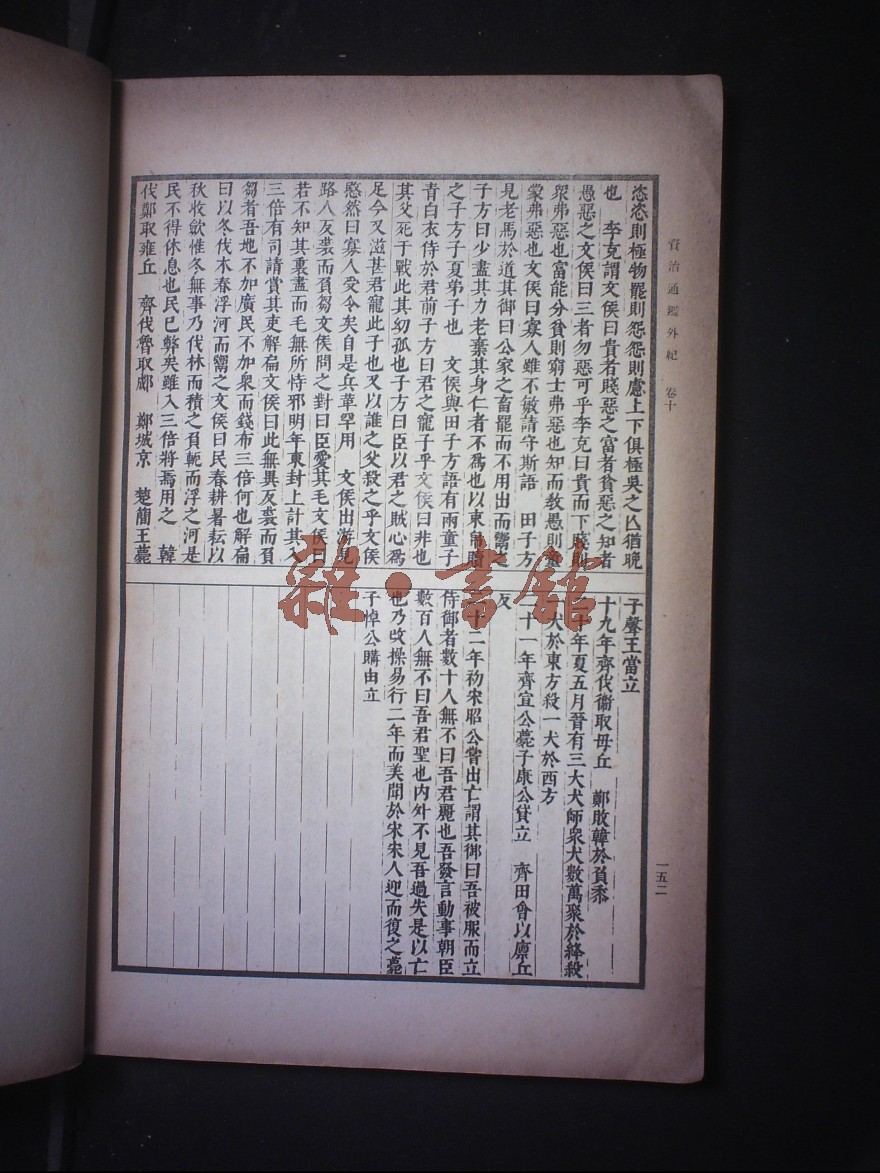 資治通鑑外紀 卷十
一五二
恣恣則極物罷則怨怨則慮上下俱極吳之亾猶晚
也 李克謂文侯曰貴者賤惡之富者貧惡之知者
愚惡之文侯曰三者勿惡可乎李克曰貴而下賤則
衆弗惡也富能分貧則窮士弗惡也知而敎愚則童
蒙弗惡也文侯曰寡人雖不敏請守斯語 田子方
見老馬於道其御曰公家之畜罷而不用出而鬻之
子方曰少盡其力老棄其身仁者不爲也以東帛贖
之子方子夏弟子也 文侯與田子方語有兩童子
靑白衣侍於君前子方曰君之寵子乎文侯曰非也
其父死于戰此其幼孤也子方曰臣以君之賊心爲
足今又滋甚君寵此子也又以誰之父殺之乎文侯
愍然曰寡人受令矣自是兵革罕用 文侯出游見
路人反裘而負芻文侯問之對曰臣愛其毛文侯曰
若不知其裏盡而毛無所恃邪明年東封上計其入
三倍有司請賞其吏解扁文侯曰此無異反裘而負
芻者吾地不加廣民不加衆而錢布三倍何也解扁
曰以冬伐木春浮河而鬻之文侯曰民春耕暑耘以
秋收歛惟冬無事乃伐林而積之負軛而浮之河是
民不得休息也民已弊矣雖入三倍將焉用之 韓
伐鄭取雍丘 齊伐魯取郕 鄭城京 楚簡王薨
子聲王當立
十九年齊伐衞取毋丘 鄭敗韓於負黍
二十年夏五月晉有三大犬師衆犬數萬聚於絳殺
一犬於東方殺一犬於西方
二十一年齊宣公薨子康公貸立 齊田會以廪丘
反
二十二年初宋昭公嘗出亡謂其御曰吾被服而立
侍御者數十人無不曰吾君麗也吾發言動事朝臣
數百人無不曰吾君聖也內外不見吾過失是以亡
也乃改操易行二年而美聞於宋宋人迎而復之薨
子悼公購由立
雜·書館